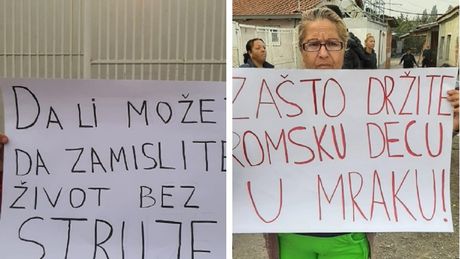 DA LI MOŽE
DA ZAMISLITE
ŽIVOT BEZ
STRUJE
ZAŠTO DRŽITE
ROMSKU DECU
U MRAKU!